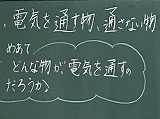 電気を通す物、通さない物
めあて
どんな物が、電気を通すの
だろうか。